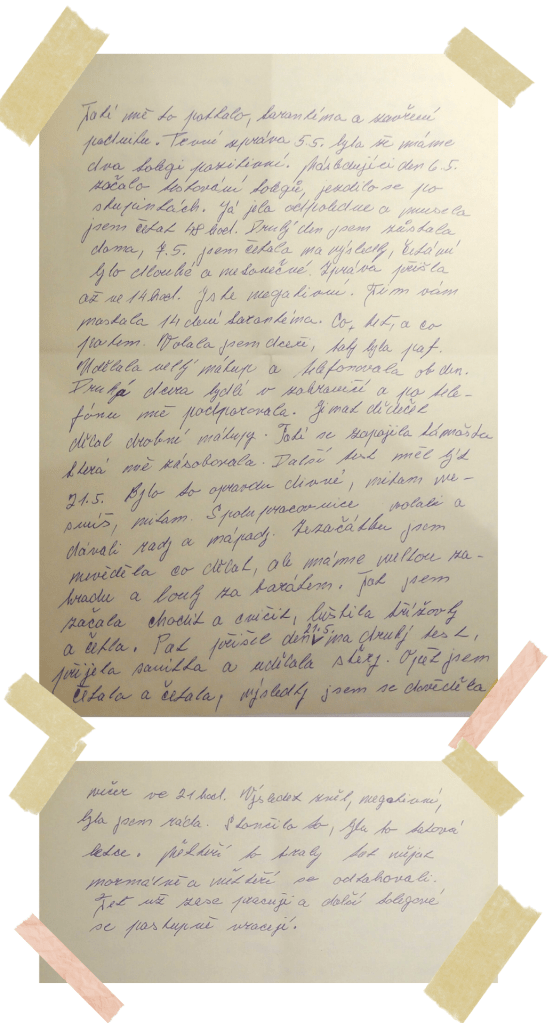 Také mě to potkalo, karanténa a zavření
podniku. První zpráva 5.5. byla že máme
dva kolegi pozitivní. Následující den 6.5.
začalo testování kolegů, jezdilo se po
skupinkách. Já jela odpoledne a musela
jsem čekat 48 hod. Druhý den jsem zůstala
doma, 7.5. jsem čekala na výsledky, čekání
bylo dlouhé a nekonečné. Zpráva přišla
až ve 14 hod. Jste negativní. Tím vám
nastala 14 dení karanténa. Co, teť, a co
potem. Volala jsem dceři, taky byla paf.
Udělala velký nákup a telefonovala ob den.
Druhá dcera bydlí v zahraničí a po tele-
fónu mě podporovala. Jinak dědeček
dělal drobné nákupy. Také se zapojila kámoška
která mě zásobovala. Další test měl být
21.5. Bylo to opravdu divné, nikam ne-
smíš, nikam. Spolupracovnice volali a
dávali rady a nápady. Ze začátku jsem
nevěděla co dělat, ale máme velkou za-
hradu a louky za barákem. Tak jsem
začala chodit a cvičit, luštila křížovky
a četla. Pak přišel den 21.5. na druhý test,
přijela sanitka a udělala stěry. Opět jsem
čekala a čekala, výsledky jsem se dověděla
večer ve 21 hod. Výsledek zněl, negativní,
byla jsem ráda. Skončilo to, byla to taková
lekce. Někteří to braly tak nějak
normálně a někteří se odtahovali.
Teť už zase pracuji a další kolegové
se postupně vracejí.